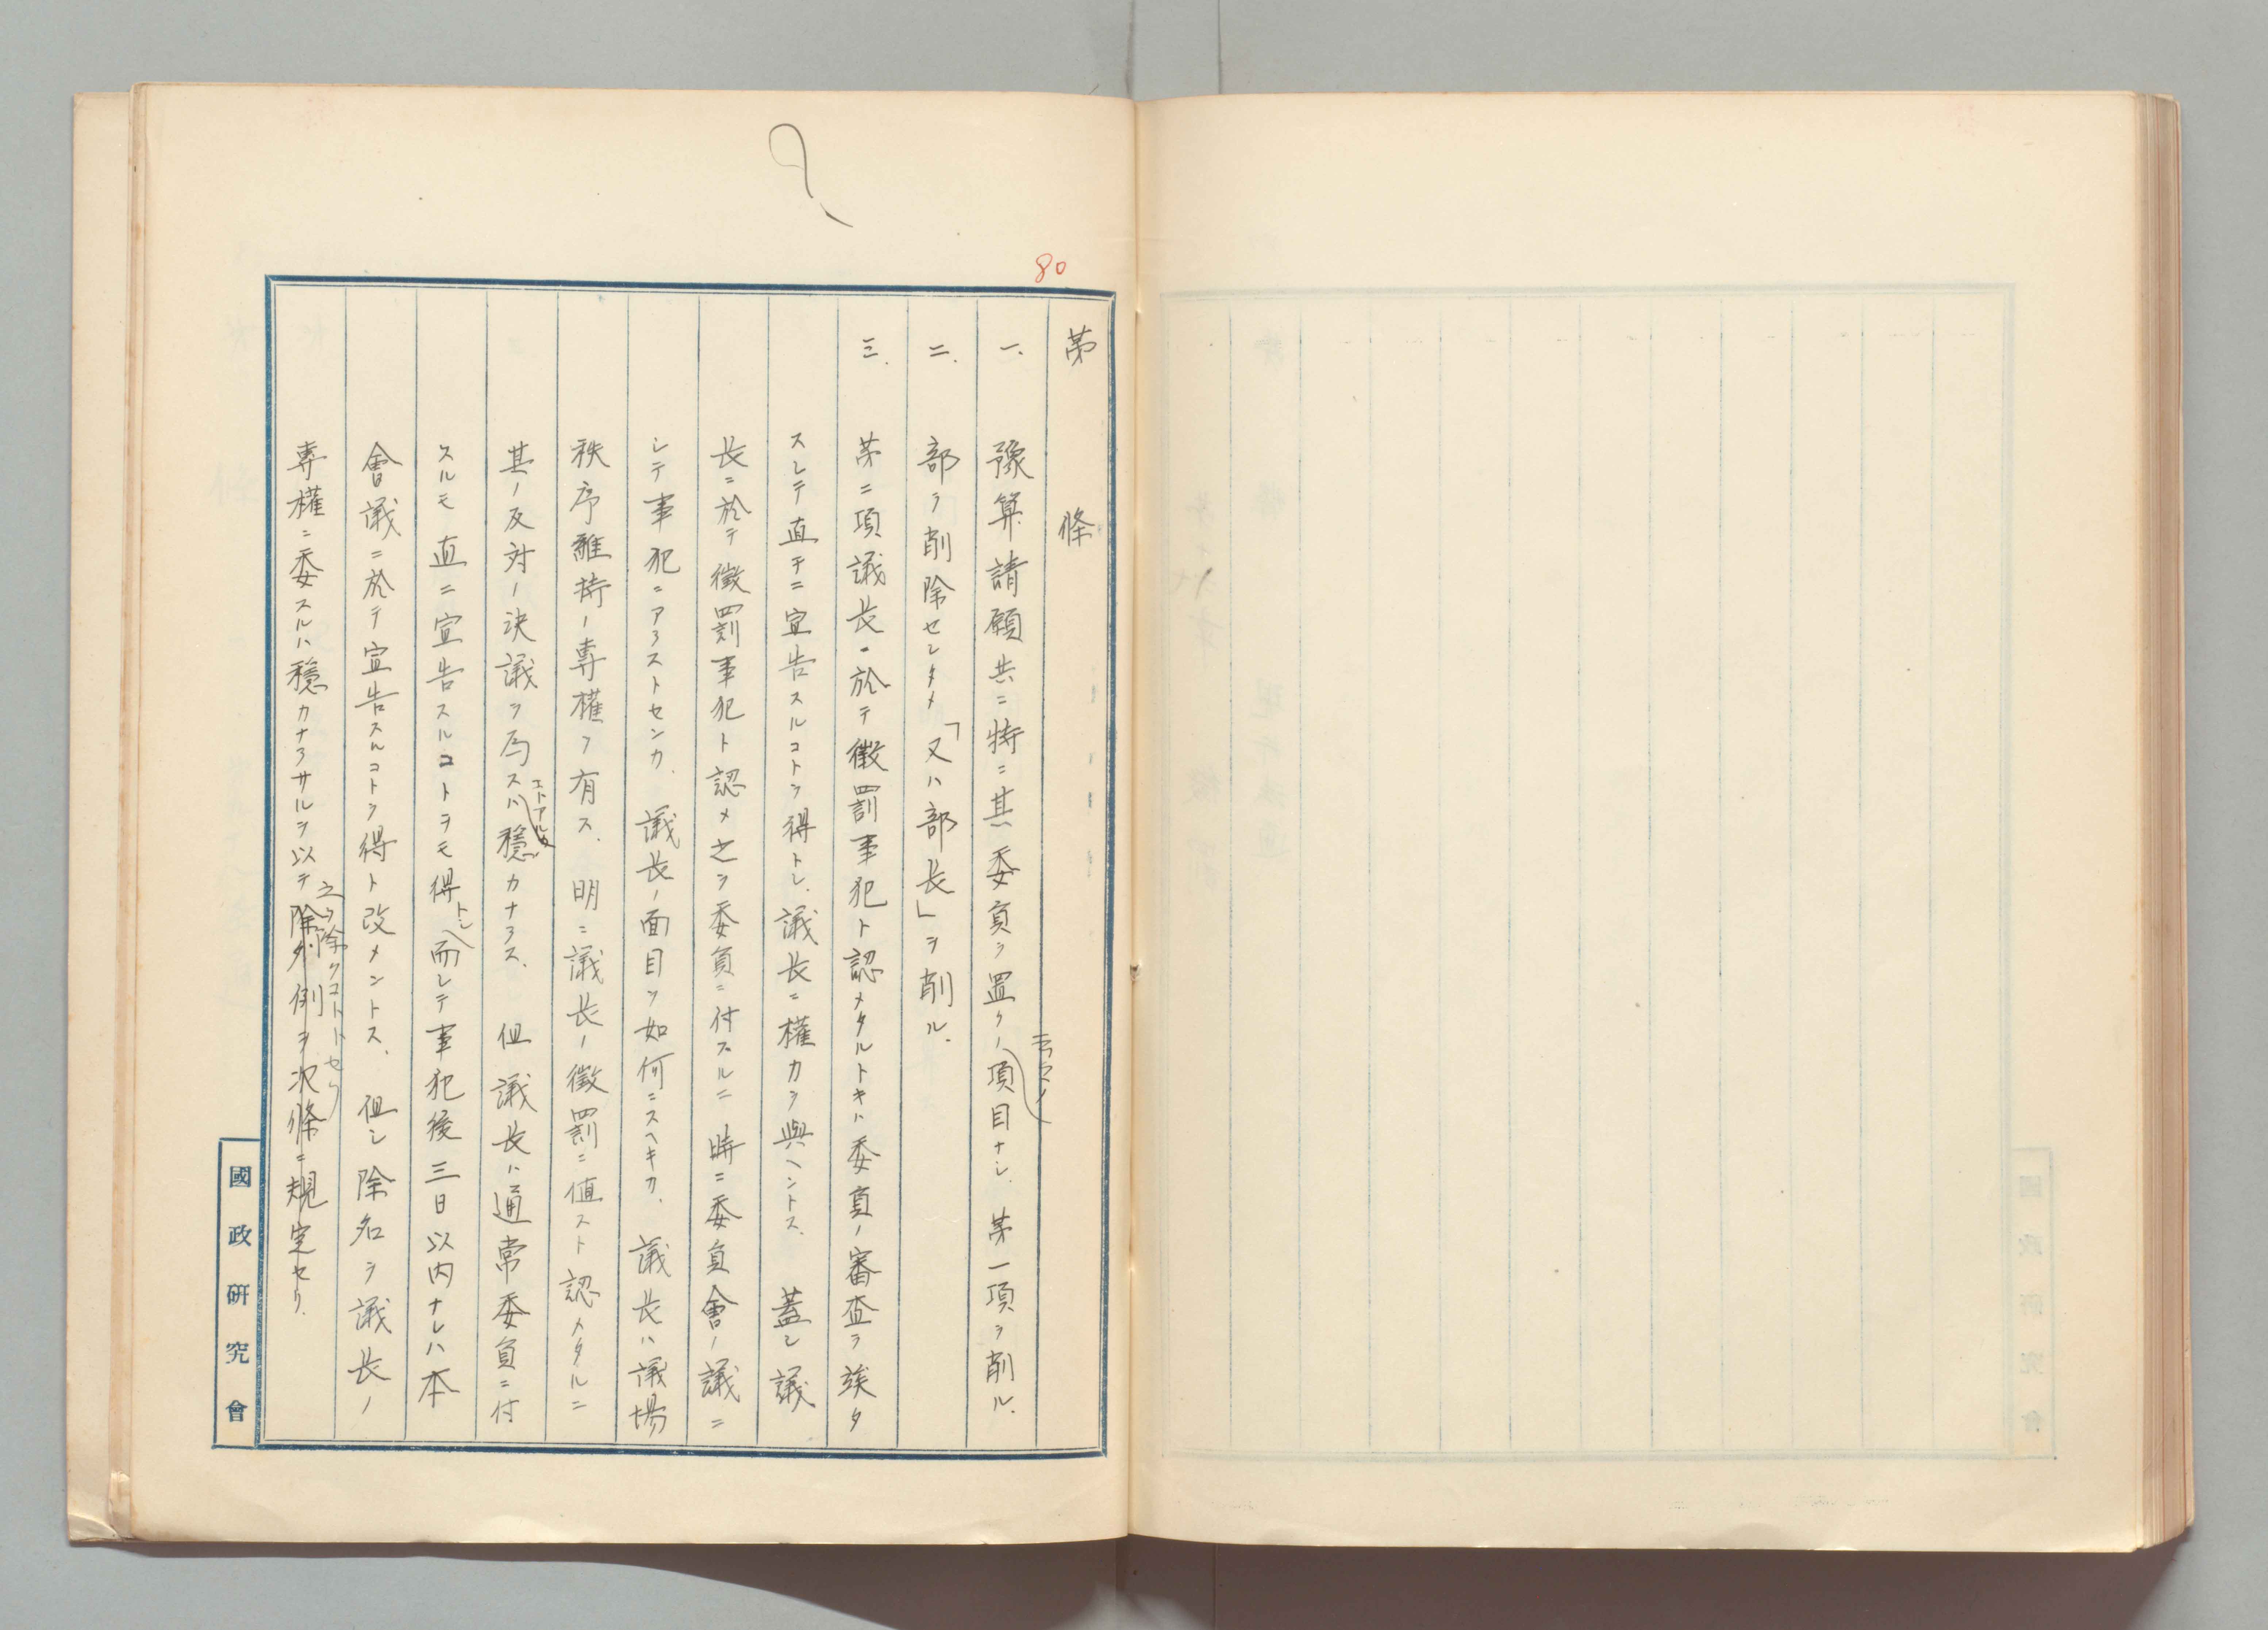 80
第　　條
一、豫算請願共ニ特ニ其委員ヲ置クノ項目ナシ、第一項ヲ削ル、
二、部ヲ削除セシタメ「又ハ部長」ヲ削ル、
三、第二項議長ニ於テ徴罰事犯ト認メタルトキハ委員ノ審査ヲ竢タ
スシテ直チニ宣告スルコトヲ得トシ、議長ニ權力ヲ與ヘントス、蓋シ議
長ニ於テ徴罰事犯ト認メ之ヲ委員ニ付スルニ時ニ委員會ノ議ニ
シテ事犯ニアラストセンカ、議長ノ面目ヲ如何ニスヘキカ、議長ハ議場
秩序維持ノ専權ヲ有ス、明ニ議長ノ徴罰ニ値スト認メタルニ
其ノ反対ノ決議ヲ為スハ穏カナラス、但議長ハ通常委員ニ付
コトアルハ
スルモ直ニ宣告スルコトヲモ得トシ而シテ事犯後三日以内ナレハ本
會議ニ於テ宣告スルコトヲ得ト改メントス、但シ除名ヲ議長ノ
専權ニ委スルハ穏カナラサルヲ以テ除外例ヲ次條ニ規定セリ、
之ヲ除クコトトセリ
國政研究會